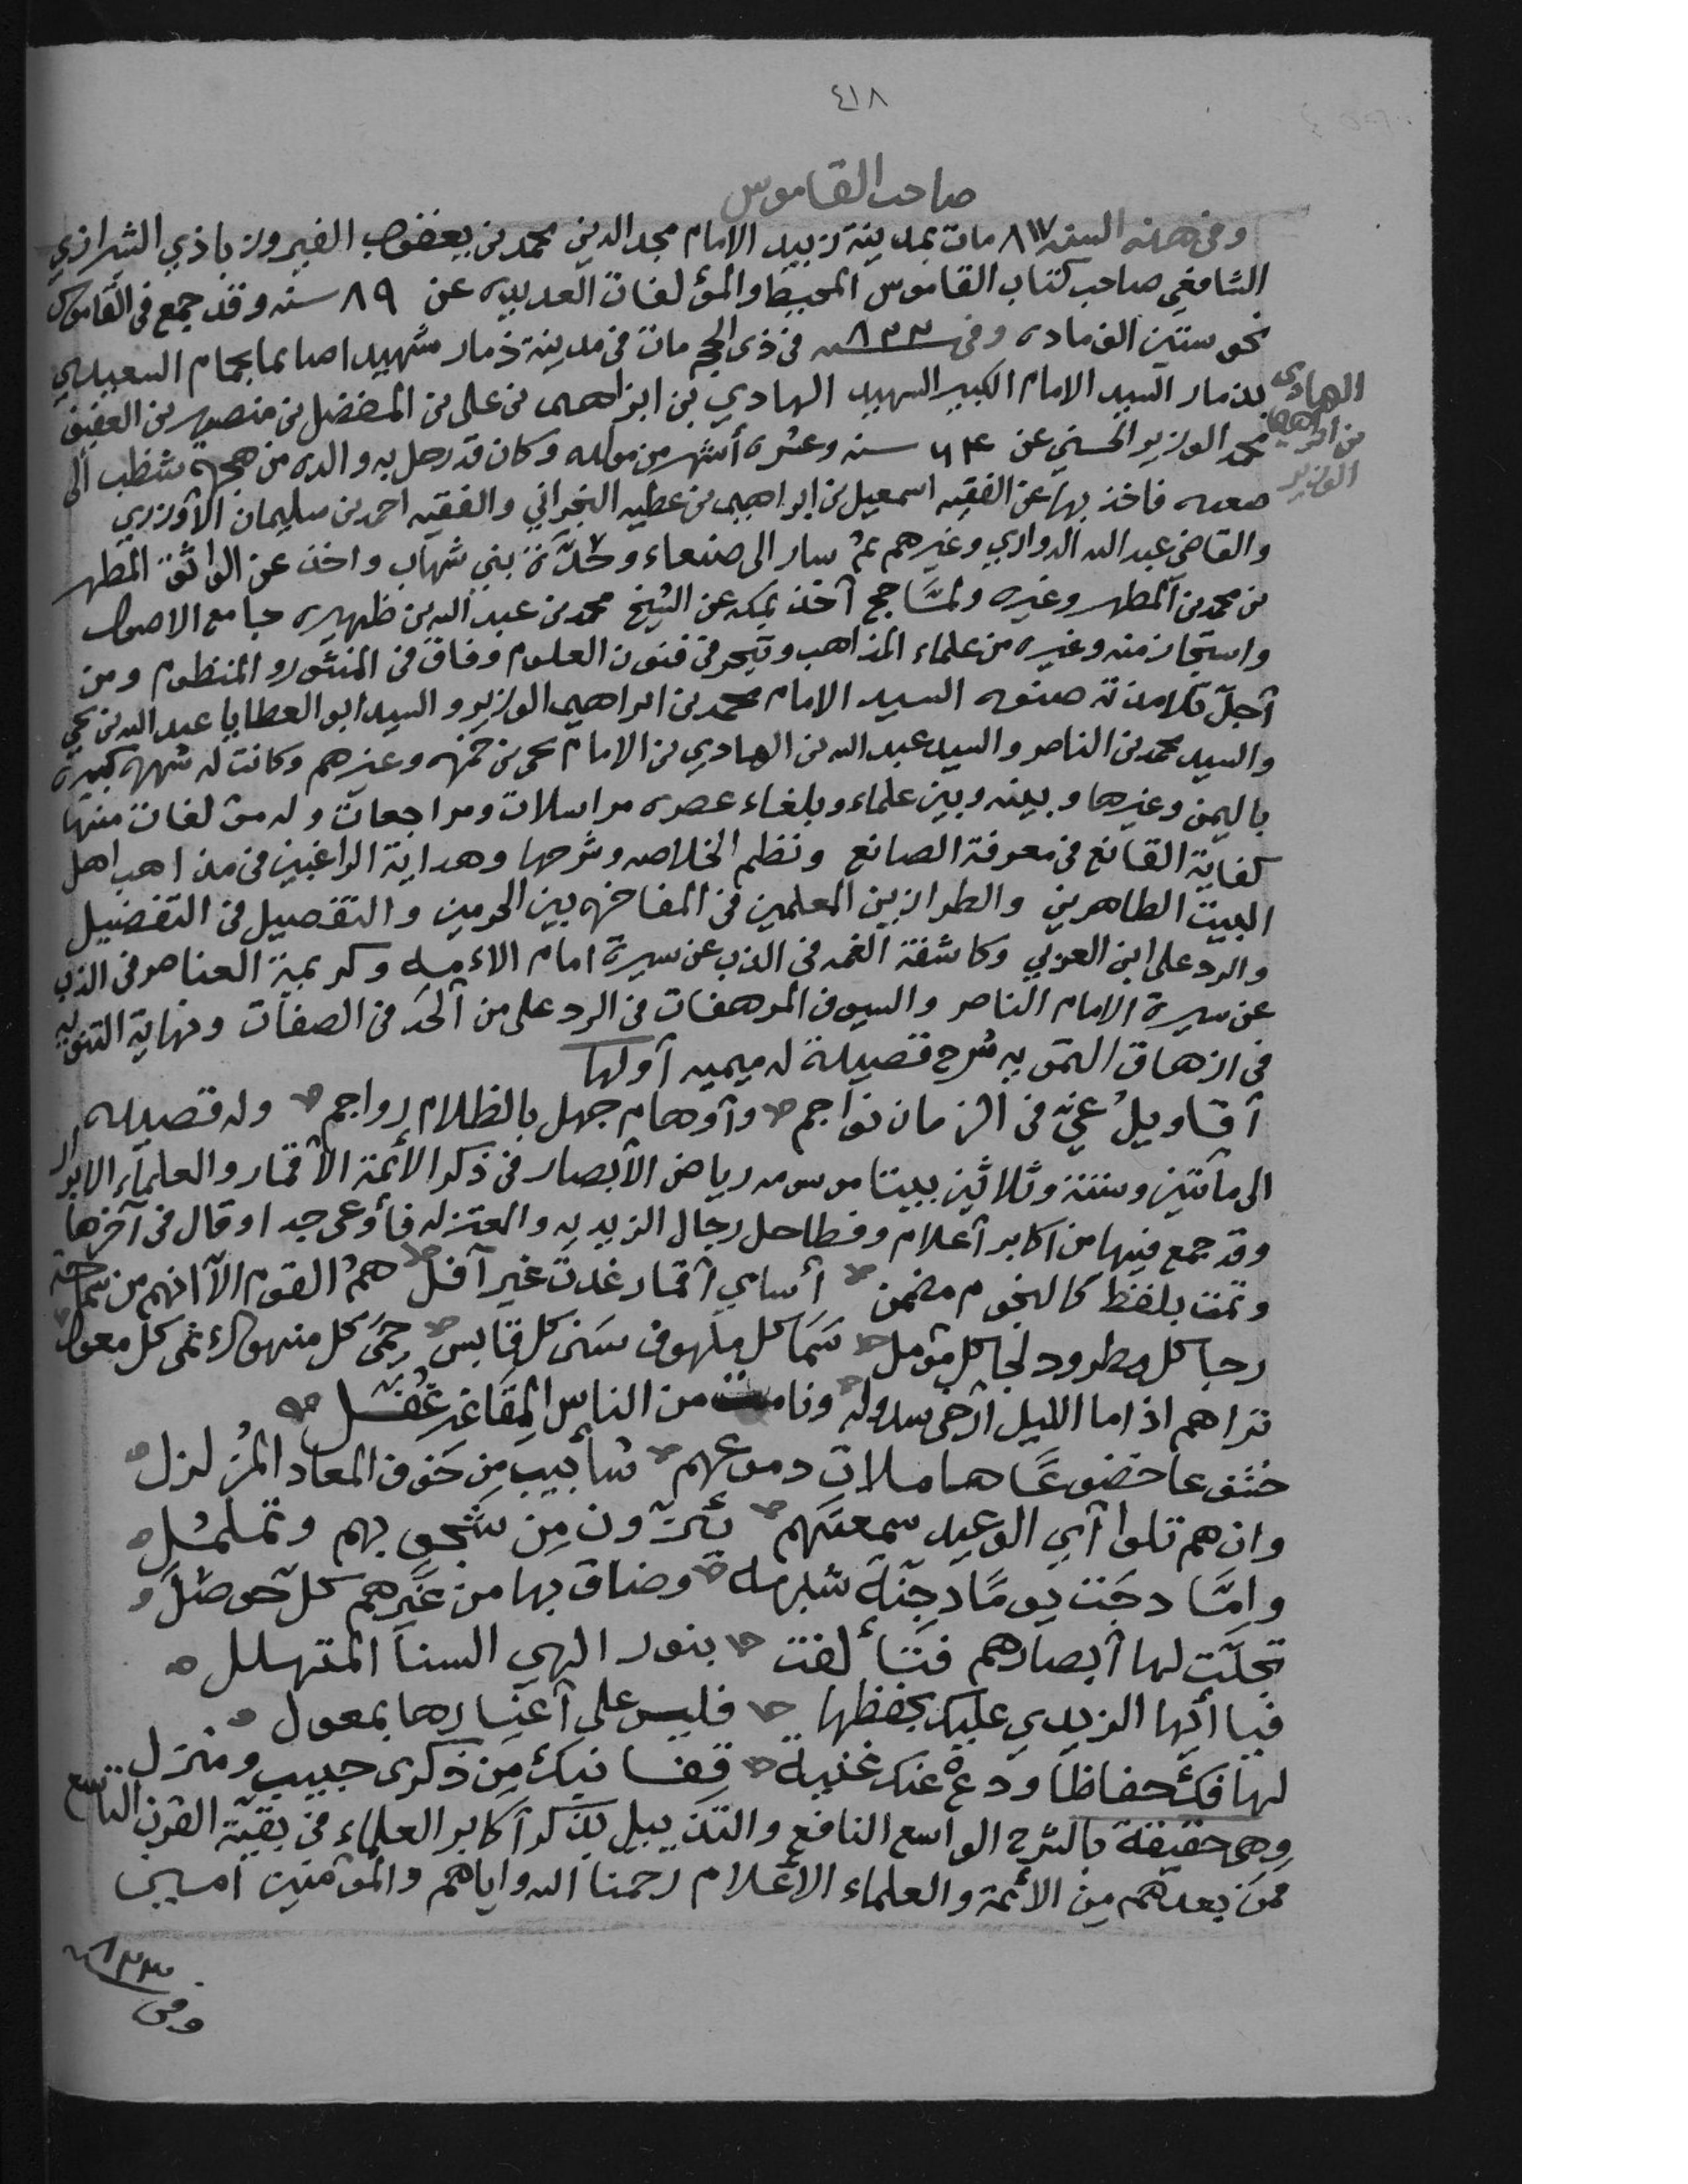 ٤١٨
صاحب القاموس
وفى هذه السنه ٨١٧ مات بمدينة زبيد الامام مجد الدين محمد بن يعقوب الفيروز باذي الشرازي
الشافعي صاحب كتاب القاموس المحيط والمؤلفات العديده عن ٨٩ سنه وقد جمع فى القاموس
نحو ستين الف ماده وفى سنة ٨٢٢ فى ذى الحجه مات فى مدينة ذمار شهيدا صائما بحمام السعيدي
الهادى بن ابراهيم الوزير
بذمار السيد الامام الكبير الشهيد الهادي بن ابراهيم بن على بن المفضل بن منصور بن العفيف
محمد الوزير الحسني عن ٦٤ سنه وعشرة أشهر من مولده وكان قد رحل به والده من هجرة شظب الى
صعده فاخذ بها عن الفقيه اسمعيل بن ابراهيم بن عطيه النجراني والفقيه احمد بن سليمان الأوزري
والقاضي عبد الله الدواري وغيرهم ثم سار الى صنعاء وحدّة بني شهاب واخذ عن الواثق المطهر
بن محمد بن المطهر وغيره ولمّا حج أخذ بمكه عن الشيخ محمد بن عبد الله بن ظهيره جامع الاصول
واستجاز منه وغيره من علماء المذاهب وتبحر فى فنون العلوم وفاق فى المنثور والمنظوم ومن
أجلّ تلامذته صنوه السيد الامام محمد بن ابراهيم الوزير والسيد ابو العطايا عبد الله بن يحي
والسيد محمد بن الناصر والسيد عبد الله بن الهادي بن الامام يحى بن حمزه وغيرهم وكانت له شهرة كبيرة
باليمن وغيرها وبينه وبين علماء وبلغاء عصره مراسلات ومراجعات وله مؤلفات منها
كفاية القانع فى معرفة الصانع ونظم الخلاصه وشرحها وهداية الراغبين فى مذاهب اهل
البيت الطاهرين والطرازين المعلمين فى المفاخره بين الحرمين والتفصيل فى التفضيل
والرد على ابن العربي وكاشفة الغمه فى الذب عن سيرة امام الاءمه وكريمة العناصر فى الذب
عن سيرة الامام الناصر والسيوف المرهفات فى الرد على من ألحد فى الصفات ونهاية التنويه
فى ازهاق التمويه شرح قصيدة له ميميه أولها
أقاويل غيّ فى الزمان نواجم وأوهام جهل بالظلام رواجم وله قصيده
الى مأتين وستة وثلاثين بيتا موسومه رياض الأبصار فى ذكر الأئمة الأقمار والعلماء الابرار
وقد جمع فيها من اكابر أعلام وفطاحل رجال الزيديه والمعتزله فأوعى جدا وقال فى آخرها
وتمت بلفظ كالنجوم مضمن أسامي أقمار غدت غير أفل هم القوم الا انهم من سماحة
رجا كل مطرود لجا كل مؤمل سَمَا كل ملهوف سَنى كل قابس حِمَى كل منهوك غنى كل معول
تراهم اذا ما الليل أرخى سدوله ونامت من الناس المقاغر غُفّل
خشوعا خضوعًا هاملات دموعهم شآبيب من خوف المعاد المُزلزل
وان هم تلوا آي الوعيد سمعتهم يئنّون مِن شجو بهم وتململ
وامّا دجَت يومًا دجنة شبهة وضاق بها من غيرهم كل حوصَل
تجلّت لها أبصارهم فتألفت بنور الهي السنا المتهلل
فيا أيها الزيدي عليك بحفظها فليس على أغيارها بمعول
لها فكُن حفاظا ودع عنك غنية قفا نبك مِن ذكرى حبيب ومنزل
وهى حقيقة بالشرح الواسع النافع والتذييل بذكر أكابر العلماء فى بقية القرن التاسع
ممن بعدهم من الأئمة والعلماء الأعلام رحمنا الله واياهم والمؤمنين امين
وفى